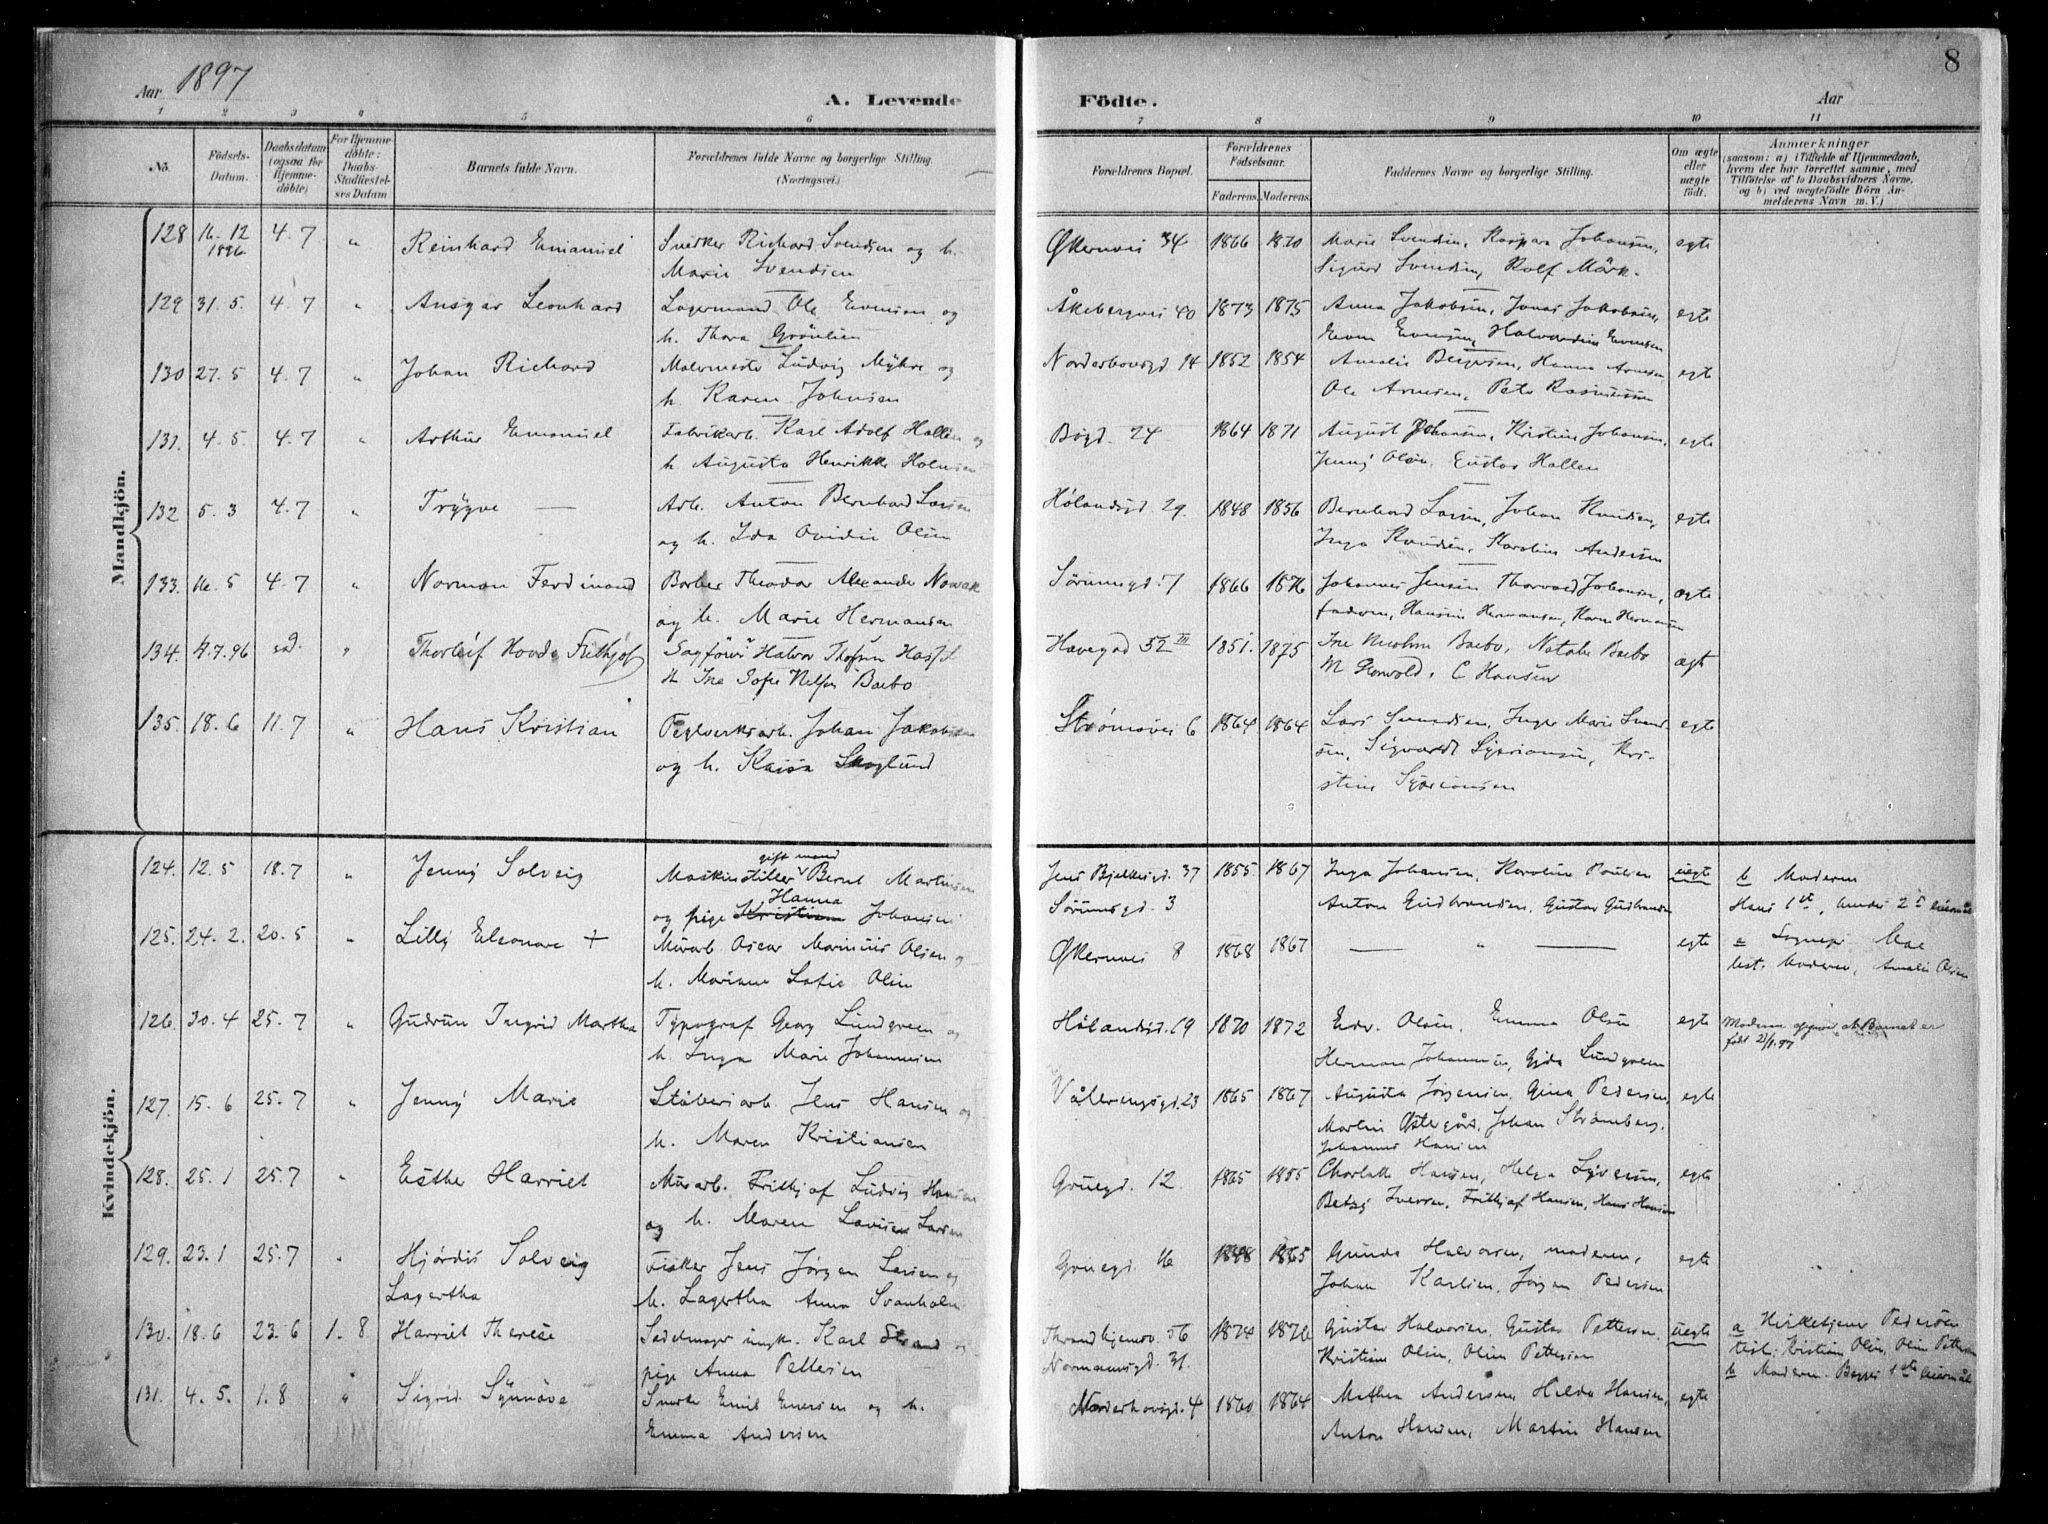 Aar 1897
A. Levende
Födte.
Aar
8
1 2 3 4 5 6 7 8 9 10 11
No.
Födsels-Datum.
Daabsdatum (ogsaa for Hjemmedöbte)
For Hjemmedöbte: Daabs-Stadfæstelses Datum
Barnets fulde Navn.
Forældrenes fulde Navne og borgerlige Stilling. (Næringsvei.)
Forældrenes Bopæl.
Forældrenes Födselsaar.
Faderens. Moderens.
Faddernes Navne og borgerlige Stilling.
Om ægte eller uægte födt.
Anmærkninger
(saasom: a) i Tilfælde af Hjemmedaab, hvem der har forrettet samme, med Tilföielse af to Daabsvidners Navne, og b) ved uegtefödte Börn Anmelderens Navn m. V.)
Mandkjön.
128 16.12 1896 4.7 " Reinhard Emanuel Snedker Richard Svendsen og h. Økernvei 34 1866 1870 Marie Svendsen, Kaspara Johansen, egte
Marie Svendsen Sigurd Svendsen, Rolf Mörk.
129 31.5. 4.7 " Ansgar Leonhard Lagermand Ole Evensen og Åkebergvei 40 1873 1875 Anna Jakobsen, Jonas Jakobsen, egte
h. Thora Grönlien Even Evensen, Halvardine Evensen
130 27.5 4.7 " Johan Richard Malermester Ludvig Myhre og Norderhovsgd 14 1852 1854 Amalie Bergersen, Hanna Arnesen egte
h. Karen Johnsen Ole Arnesen, Peter Rasmussen
131. 4.5. 4.7 " Arthur Emanuel Fabrikarb. Karl Adolf Hallen og Bögd. 24 1864 1871 August Johansen, Kristine Johansen, egte
h Augusta Henrikke Holmsen Jenny Olsen, Gustav Hallen
132 5.3 4.7 " Trygve — Arb. Anton Bernhard Larsen Hølandsgd. 29 1848 1856 Bernhard Larsen, Johan Knudsen, egte
og h. Ida Ovidie Olsen Inga Knudsen, Karoline Andersen
133. 16.5 4.7 " Norman Ferdinand Barber Theodor Alexander Nowak Sørumsgd. 7 1866 1876 Johannes Jensen Thorvald Johansen, ægte
og h. Marie Hermansen faderen, Hansine Hermansen, Karen Hermansen
134. 4.7.96 " Thorleif Hovde Fridthjof Sagförer Halvor Havegad 52 III 1851. 1875 Ine Nicoline Barbo, Natalie Barbo ægt
H Ine Sofie Barbo M. C Hansen
135. 18.6 11.7 " Hans Kristian Teglverksarb. Johan Jakobsen Strømsvei 6 1864 1864 Lars Svendsen, Inger Marie Svend- egte
og h. Kaisa Skoglund sen, Sigvardt Syversensen, Kri-
stine
Kvindekjön.
124. 12.5 18.7 " Jenny Solveig Maskinstiller gift mand Bernt Martinsen Jens Bjelkesgd. 37 1855 1867 Inga Johansen, Karoline Poulsen uegte b Moderen
og pige Kristiane Hanna Johansen Sørumsgd. 3 Anton Gudbrandsen, Gustav Gudbrandsen Hans 1st, hendes 2d leiermål
125. 24.2. 20.5 " Lilly Eleonore + Murarb. Oscar Marinius Olsen og Økernvei 8 1868 1867 — " — egte a Sognepr. Moe
h. Mariane Sofie Olsen test. Moderen, Amalie Olsen
126. 30.4 25.7 " Gudrun Ingrid Martha Typograf Georg Lundgreen og Hølandsgd. 19 1870 1872 Edv. Olsen, Emma Olsen egte Moderen opgiver at Barnet er
h. Inga Marie Johannesen Herman Johannesen, Gyda Lundgreen født
127. 15.6 25.7 " Jenny Marie Støberiarb. Jens Hansen og Vålerengsgd. 23 1865 1867 Augusta Jørgensen, Gina Pedersen, egte
h. Maren Kristiansen Martin Østergård, Johan Strømberg.
Johannes Hansen
128. 25.1 25.7 " Esther Harriet Murarb. Frithjof Ludvig Hansen Gruegd. 12. 1865 Charlotte Hansen, Helga Syversen, egte
og h. Maren Lovise Larsen Betsy Iversen, Frithjof Hansen, Hans Hansen
129. 23.1 25.7 " Hjørdis Solveig Fisker Jens Jørgen Larsen og Gruegd. 16 1848 1865 Gunda Halvorsen, moderen, egte
Lagertha h. Lagertha Anna Svanholm Johan Karlsen, Jørgen Pedersen
130. 18.6 23.6 1.8 Harriet Therese Sadelmager ungk. Karl Strand og Throndhjemsv. 56 1874 1876 Gustav Halvorsen, Gustav Pettersen, uegte a Kirketjener Pedersen
pige Anna Pettersen Normannsgd. 31. Kristian Olsen, Oline Pettersen test: Kristian Olsen, Oline Pettersen
b Moderen. Begges 1ste leiermål
131. 4.5. 1.8 " Sigrid Synnöve Snedker Emil Evensen og h. Norderhovsgd. 4 1860 1864 Mathea Andersen Hilda Hansen, egte
Emma Andersen Anton Hansen, Martin Hansen